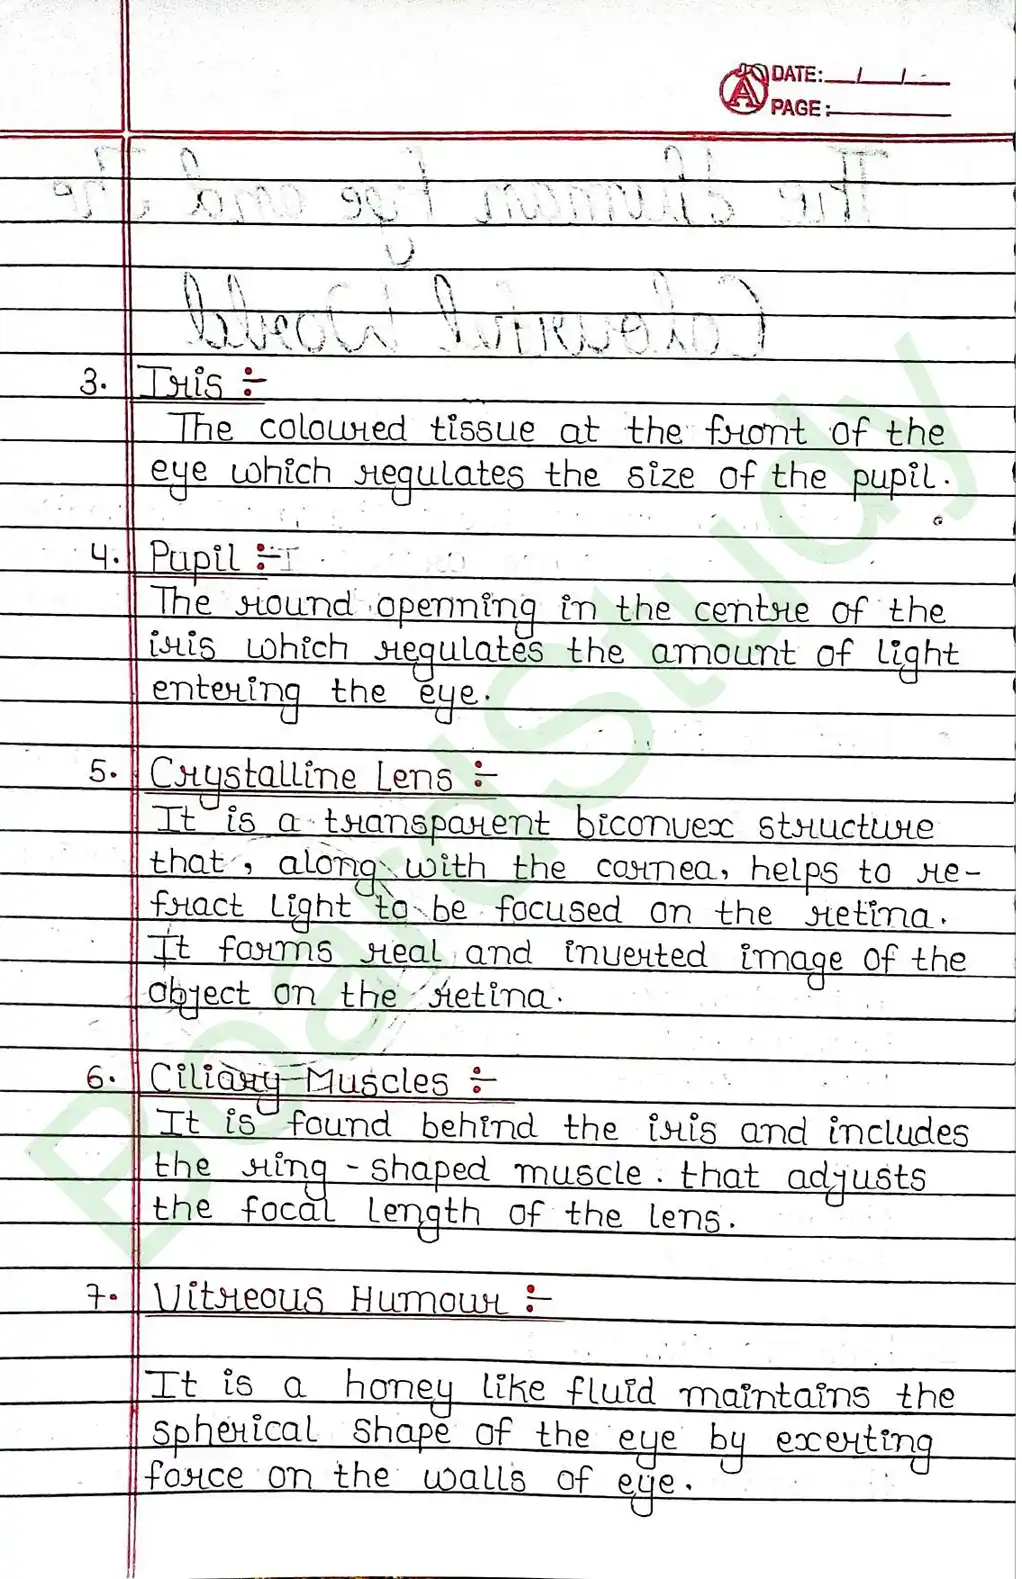 DATE: / /
PAGE:
The Human Eye and The
Colourful World
3. Iris :-
The coloured tissue at the front of the
eye which regulates the size of the pupil.
4. Pupil :-
The round openning in the centre of the
iris which regulates the amount of light
entering the eye.
5. Crystalline Lens :-
It is a transparent biconvex structure
that, along with the cornea, helps to re-
fract light to be focused on the retina.
It forms real and inverted image of the
object on the retina.
6. Ciliary Muscles :-
It is found behind the iris and includes
the ring - shaped muscle. that adjusts
the focal length of the lens.
7. Vitreous Humour :-
It is a honey like fluid maintains the
spherical shape of the eye by exerting
force on the walls of eye.
BoardStudy